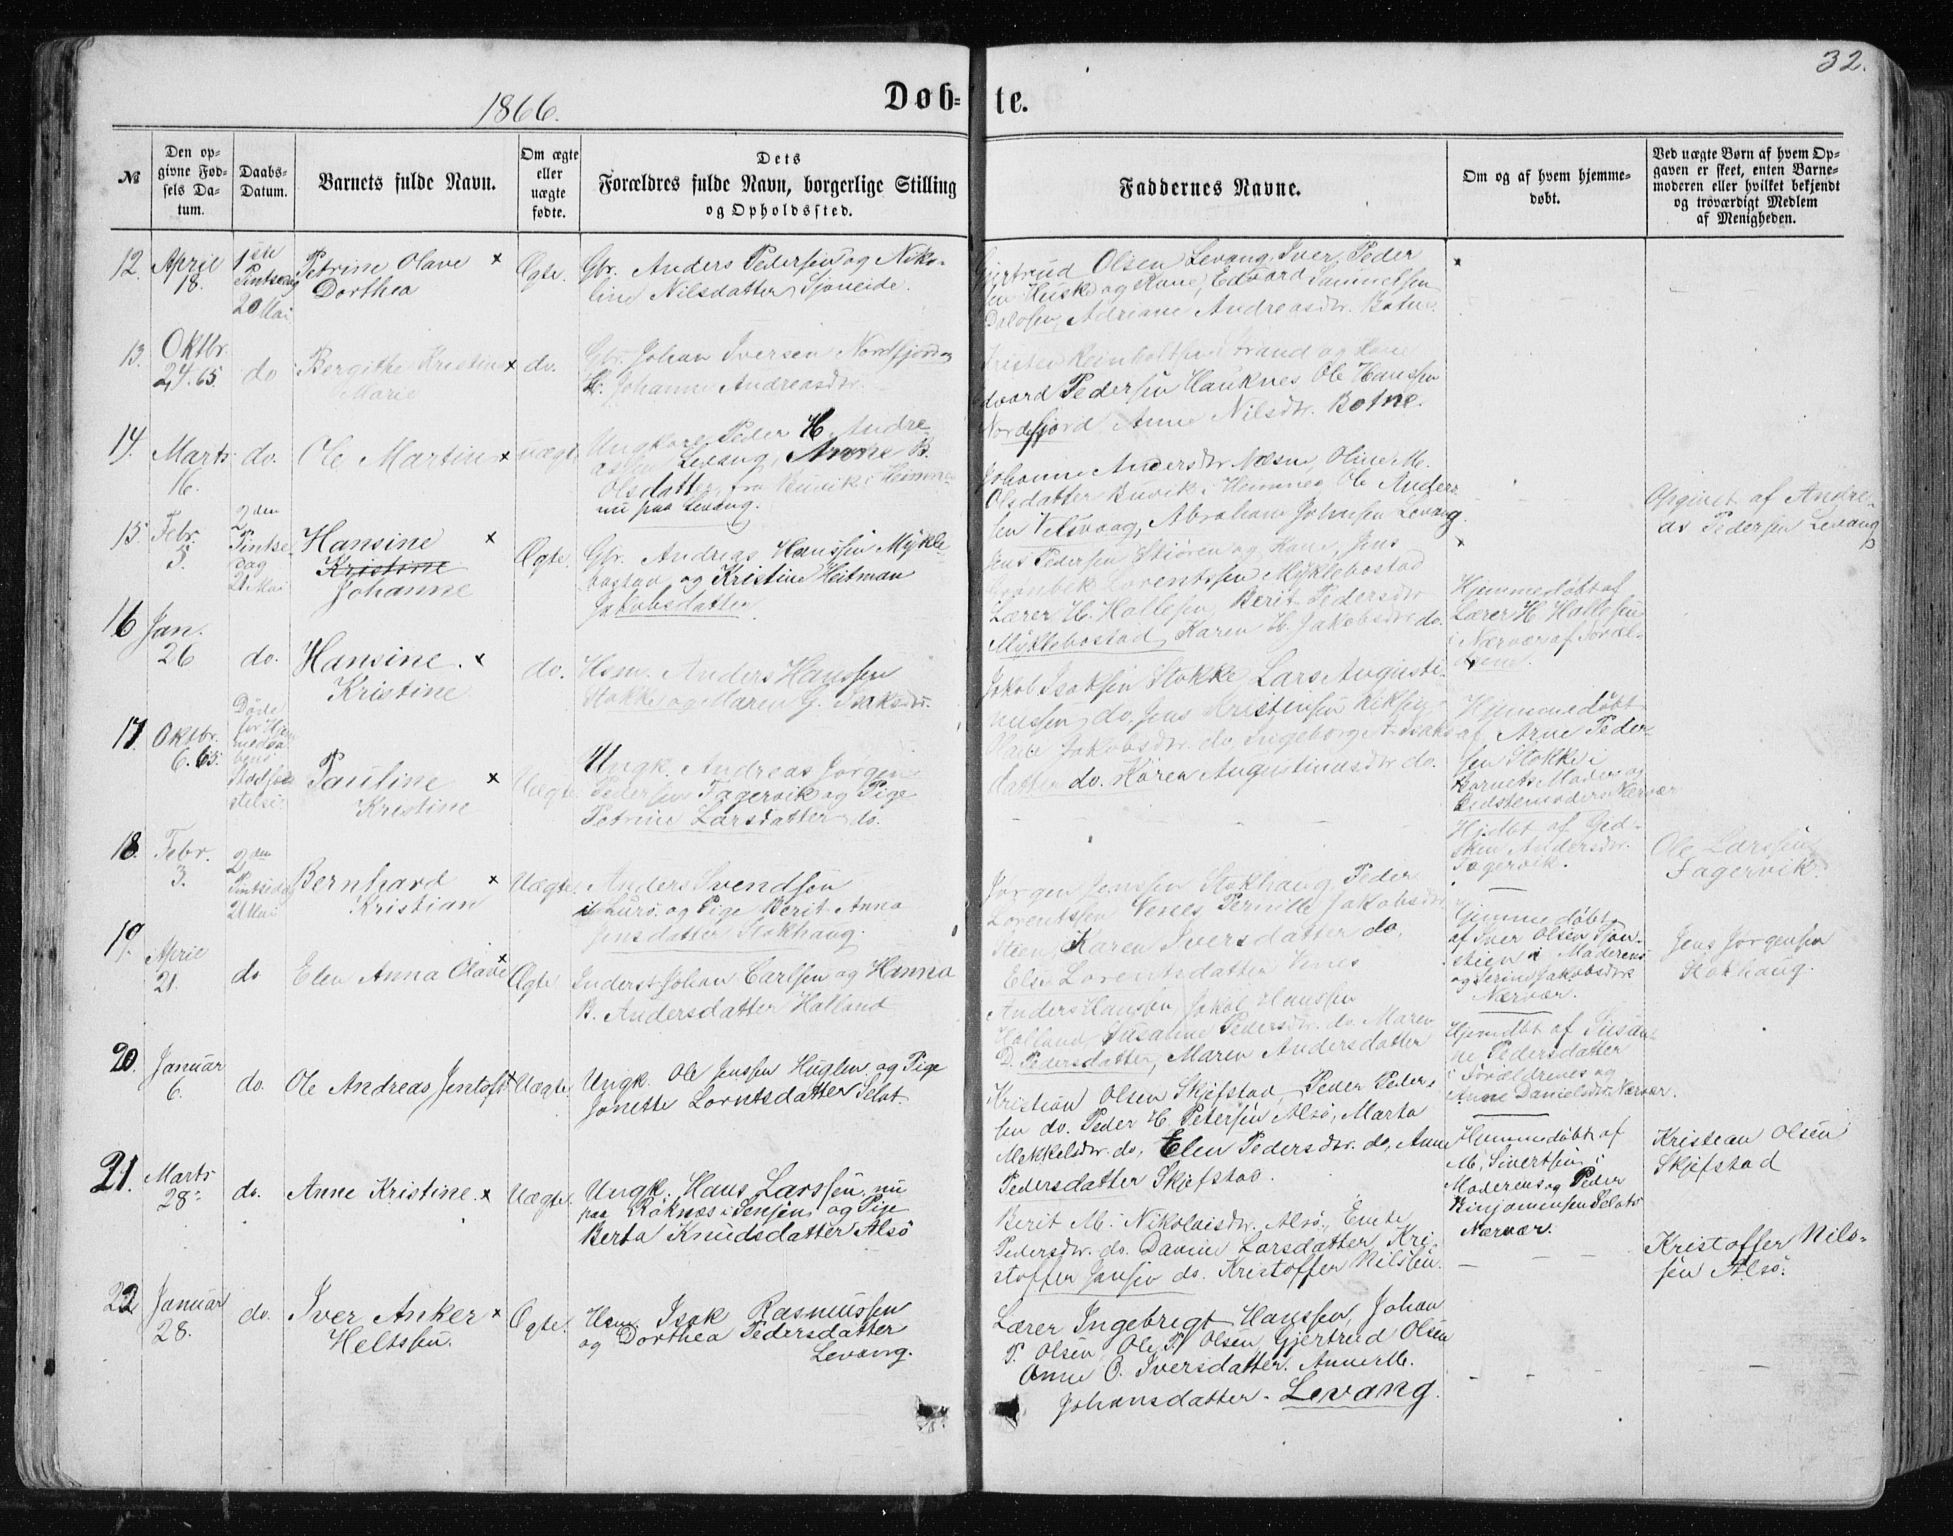 1866.
Døb-
te.
32.
№
Den op-
givne Fød-
sels Da-
tum.
Daabs-
Datum.
Barnets fulde Navn.
Om ægte
eller
uægte
fødte.
Dets
Forældres fulde Navn, borgerlige Stilling
og Opholdssted.
Faddernes Navne.
Om og af hvem hjemme-
døbt.
Ved uægte Børn af hvem Op-
gaven er skeet, enten Barne-
moderen eller hvilket bekjendt
og troværdigt Medlem
af Menigheden.
12.
April
18.
1ste
Pintsedag
20 Mai
Petrine Olave x
Dorthea
Ægte.
Gbr. Anders Pedersen og Niko-
line Nilsdatter Sjoneide.
Gjertrud Olsen Levang, Iver Peder
sen Husk og Kone, Edvard Samuelsen
Dalosen, Adriane Andreasdtr. Botne.
13.
Oktbr.
24. 65.
do
Bergithe Kristine x
Marie
do.
Gbr. Johan Iversen Nordfjord og
H. Johanne Andreasdtr.
Strand og Kone
Edvard Pedersen Hauknes Ole Hanssen
Nordfjord Anne Nilsdtr. Botne.
14.
Marts
16.
do.
Ole Martin x
uægte
Ungkare Peder H. Andre-
assen Levang, Anne B.
Olsdatter fra Buvik i Hemnes
nu paa Levang.
Johanne Andersdtr Næsne, Oline M.
Olsdatter Buvik i Hemnes Ole Anders
sen Vetsvaag, Abraham Johnsen Levang.
Opgivet af Andre-
as Pedersen Levang
15
Febr.
5.
2den
Pintse-
dag
21 Mai
Hansine x
Kristine
Johanne
Ægte.
Gbr. Andreas Hanssen Mykle-
bostad og Kristine Heitman
Jakobsdatter.
Jens Pedersen Skjøren og Kone, Jens
Lorentssen Myklebostad
Lærer H. Hallesen, Berit Pedersdtr
Myklebostad, Karen H. Jakobsdtr do.
Hjemmedøbt af
Lærer H. Hallesen
i Nærvær af Foræl-
drene.
16
Jan.
26
do.
Hansine. x
Kristine
do.
Hsm. Anders Hanssen
Stokke og Maren G. Isaksdtr.
Jakob Isaksen Stokke Lars Augusti-
nussen do. Jens Kristensen
Jakobsdtr. do. Ingeborg A. Isaks
datter do. Karen Augustinusdtr do.
Hjemmedøbt
af Arne Peder-
sen Stokke i
Barnets Moder og
Bedstemoders Nærvær
17.
Oktbr.
6. 65.
Døde
før Hjem
medaa
bens
Stadfæ
stelse
Pauline x
Kristine
Uægte
Ungk. Andreas Jørgen
Pedersen Fagervik og Pige
Petrine Larsdatter do.
Hjdbt af Ged-
sken Andersdtr.
Fagervik.
Ole Larssen
Fagervik.
18.
Febr.
3.
2den
Pintsedag
21 Mai
Bernhard x
Kristian
Uægte.
Anders Svendsen
i Lurø. og Pige Berit Anna
Jensdatter Stokhaug.
Jørgen Jenssen Stokhaug Peder
Lorentssen Venes, Pernille Jakobsdtr
Stien, Karen Iversdatter do.
Else Lorentsdatter Venes
Hjemmedøbt
af Iver Olsen Sjon-
stien i Moderens
og Serine Jakobsdtrs
Nærvær.
Jens Jørgensen
Stokhaug.
19.
April
21.
do
Elen Anna Olave x
Ægte.
Inderst Johan Carlsen og Hanna
B. Andersdatter Holland
Anders Hanssen, Jakob Hanssen
Holland, Susanne Pedersdtr. do Maren
D. Pedersdatter, Maren Andersdatter
Hjemdøbt af Susan-
ne Pedersdatter
i Forældrenes og
Anne Danielsdtr Nærvær.
20.
Januar
6.
do.
Ole Andreas Jentoft
Uægte.
Ungk. Ole Jenssen Huglen og Pige
Jonette Lorntsdatter Selot.
Kristian Olsen Skjefstad, Peder Peder-
sen do. Peder H. Petersen Alsø, Marta
Mekkelsdtr. do, Elen Pedersdtr. do, Anne
Pedersdatter Skjefstad.
Hjemmedøbt af
M. Sivertsen i
Moderens og Peder
Binjaminsen Selots
Nærvær.
Kristean Olsen
Skjefstad
21.
Marts
28.
do.
Anne Kristine. x
Uægte.
Ungk. Hans Larssen, nu
paa Roknæs i Senjen og Pige
Berta Knudsdatter Alsø
Berit M. Nikolaisdtr. Alsø,
Pedersdtr. do. Davine Larsdatter Kri-
stoffer Jansen do. Kristoffer Nilssen.
Kristoffer Nils-
sen Alsø.
22.
Januar
28.
do.
Iver Anker x
Heltssen.
Ægte.
Hsm. Isak Rasmussen
og Dorthea Pedersdatter
Levang.
Lærer Ingebregt Hanssen, Johan
P. Olsen, Ole P. Olsen, Gjertrud Olsen
Anne O. Iversdatter. Anne M.
Johansdatter. Levang.